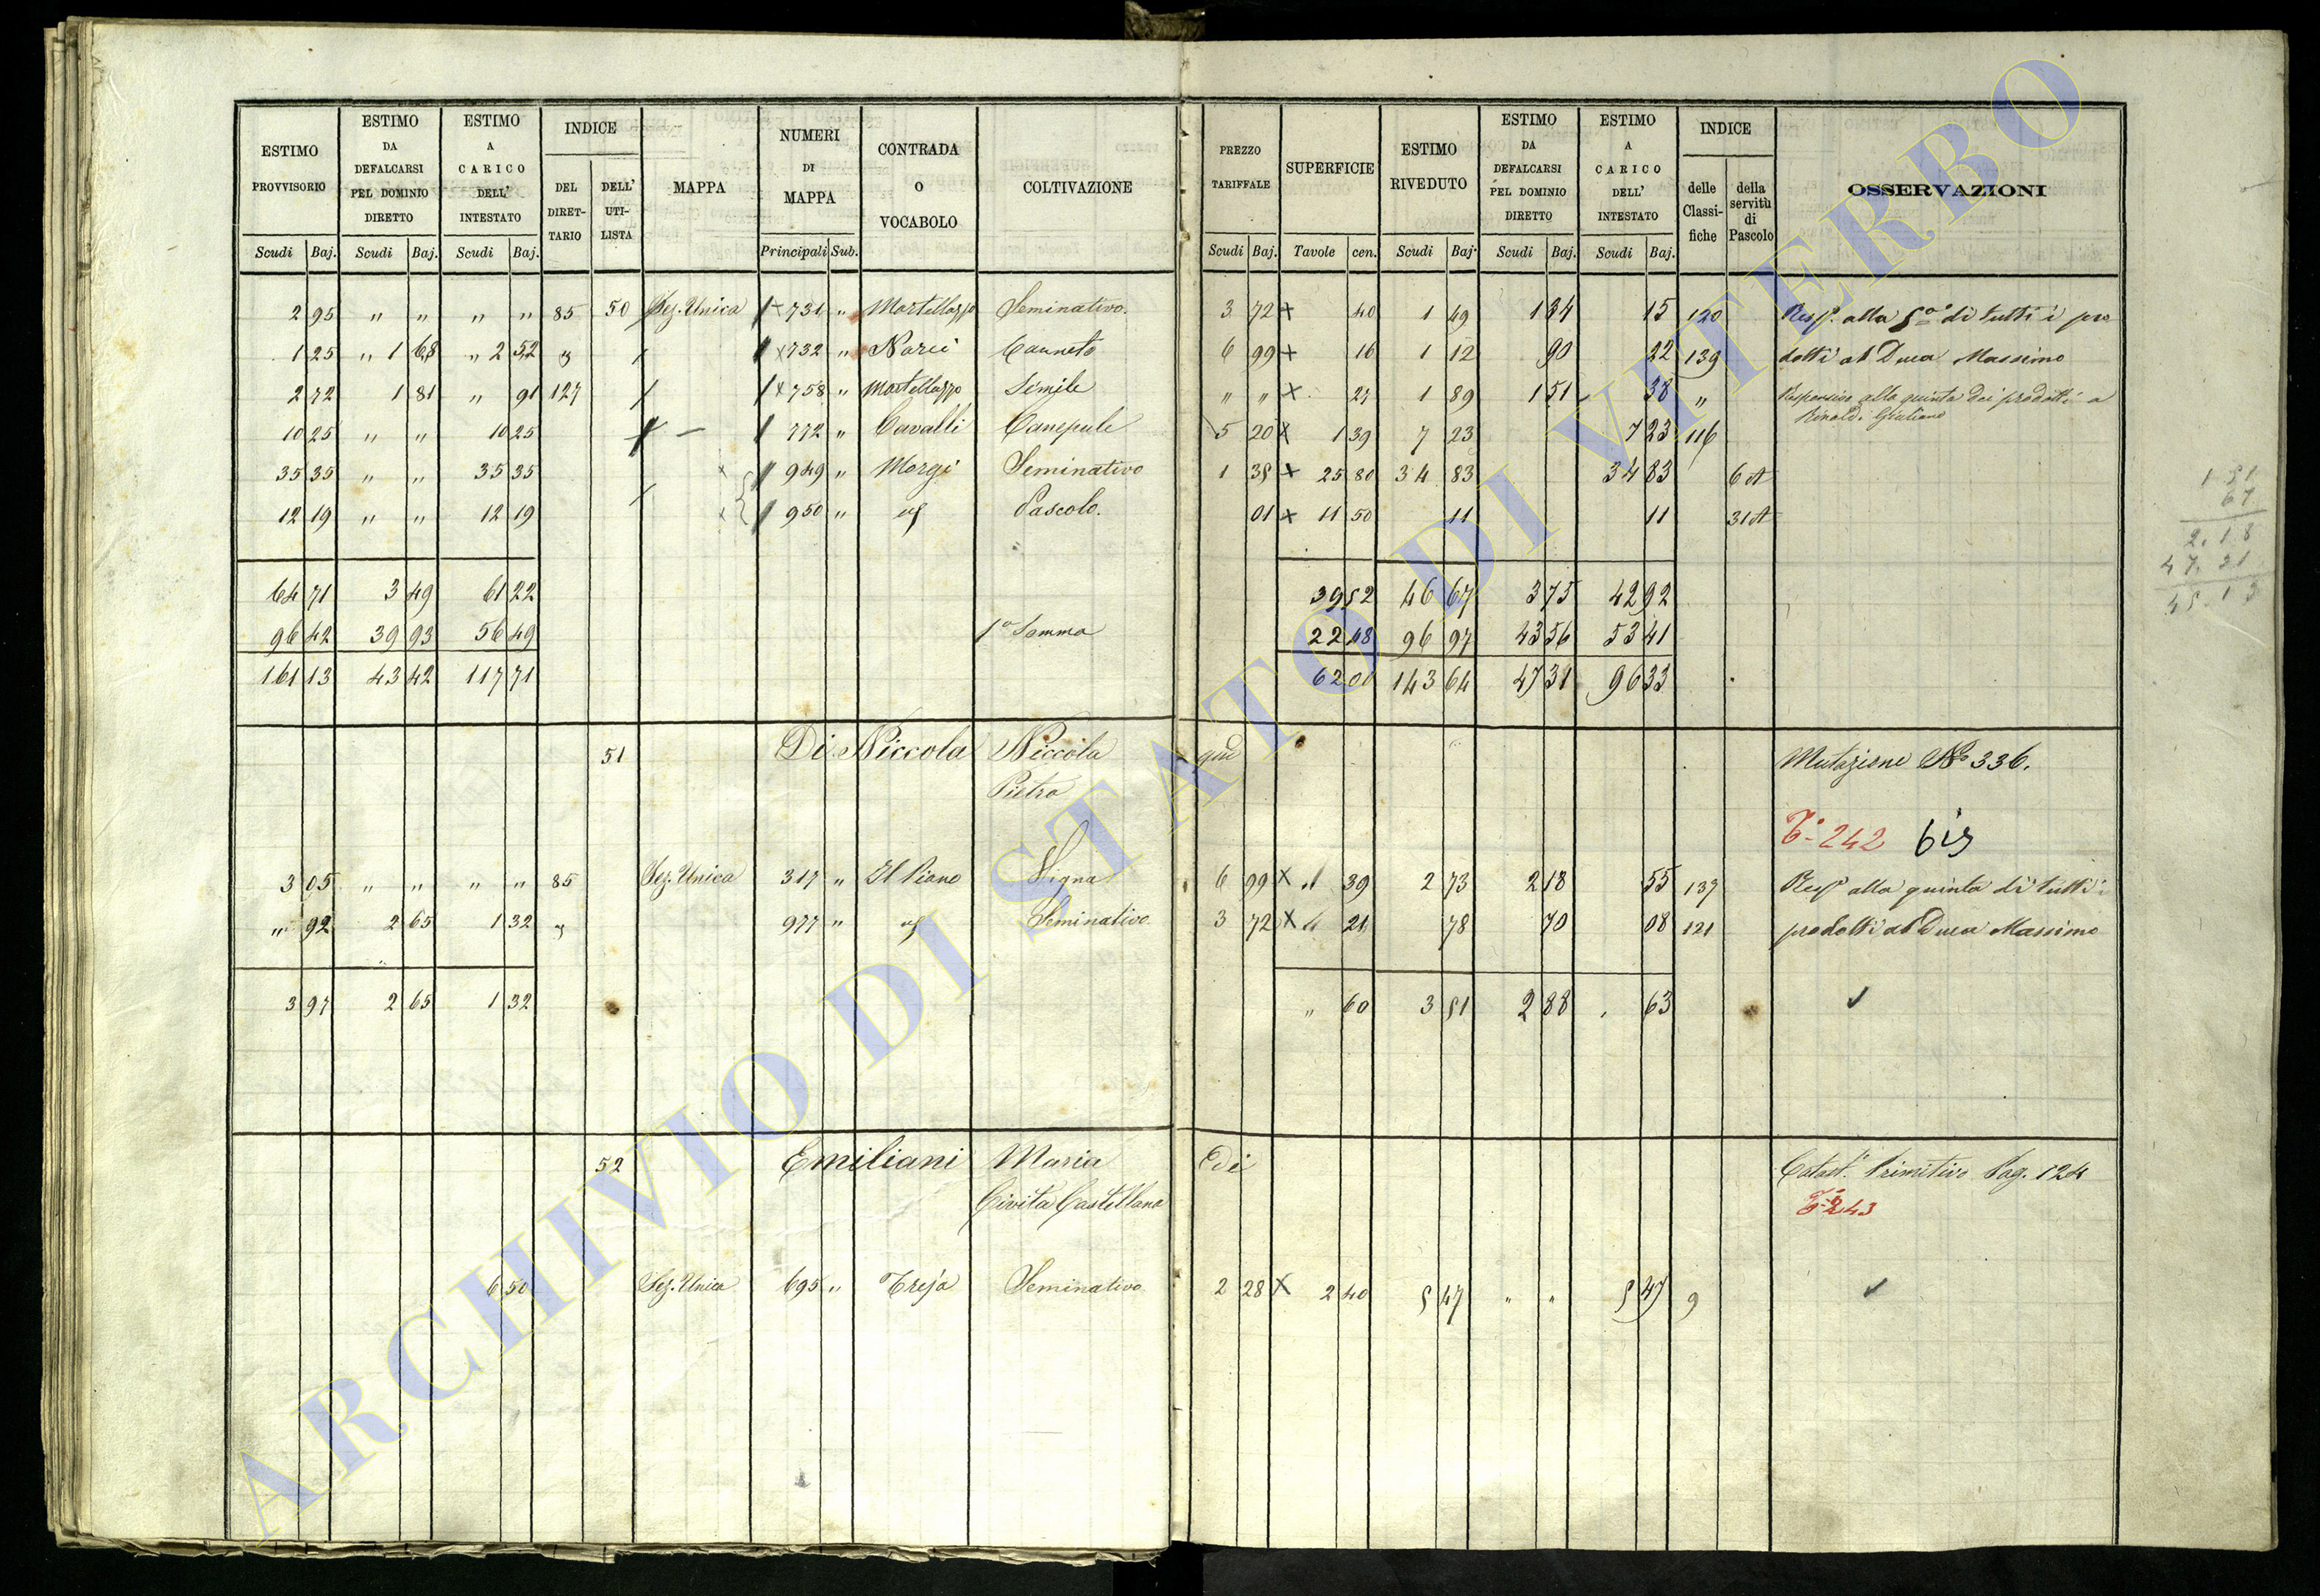 ESTIMO PROVVISORIO | ESTIMO DA DEFALCARSI PEL DOMINIO DIRETTO | ESTIMO A CARICO DELL' INTESTATO | INDICE | MAPPA | NUMERI DI MAPPA | CONTRADA O VOCABOLO | COLTIVAZIONE | PREZZO TARIFFALE | SUPERFICIE | ESTIMO RIVEDUTO | ESTIMO DA DEFALCARSI PEL DOMINIO DIRETTO | ESTIMO A CARICO DELL' INTESTATO | INDICE | OSSERVAZIONI
DEL DIRET-TARIO | DELL' UTI-LISTA | delle Classi-fiche | della servitù di Pascolo
Scudi | Baj. | Scudi | Baj. | Scudi | Baj. | Principali | Sub. | Scudi | Baj. | Tavole | cen. | Scudi | Baj. | Scudi | Baj. | Scudi | Baj.
2 95 " " " " 85 50 Sez. Unica 731 " Martellazzo Seminativo. 3 72 × 40 1 49 1 34 15 120 Resp. alla 5a di tutti i pro
1 25 " 1 68 " 2 52 " 732 " Narci Canneto 6 99 × 16 1 12 90 22 139 dotti al Duca Massimo
2 72 1 81 " 91 127 758 " Martellazzo Simile " " × 27 1 89 1 51 38 " Responsivo alla quinta dei prodotti a
Rinaldi Giuliano
10 25 " " 10 25 772 " Cavalli Canepule 5 20 × 1 39 7 23 7 23 116
35 35 " " 35 35 949 " Morgi Seminativo 1 35 × 25 80 34 83 34 83 6 A
12 19 " " 12 19 950 " Pascolo. 01 × 11 50 11 11 31 A
64 71 3 49 61 22 39 52 46 67 3 75 42 92
96 42 39 93 56 49 1a Somma 22 48 96 97 43 56 53 41
161 13 43 42 117 71 62 00 143 64 47 31 96 33
1 51
67
2.18
47.31
51 Di Niccola Niccola qm Mutazione No 336.
Pietro
242 bis
3 05 " " " " 85 Sez. Unica 317 " Il Piano Vigna 6 99 × 39 2 73 2 18 55 137 Resp alla quinta di tutti i
" 92 2 65 1 32 977 " Seminativo 3 72 × 21 78 70 08 121 prodotti al Duca Massimo
3 97 2 65 1 32 " 60 3 51 2 88 63
52 Emiliani Maria Edi Catast. Primitivo Pag. 124
Civita Castellana 243
6 50 Sez. Unica 695 " Treja Seminativo 2 28 × 2 40 5 47 " " 5 47 9
ARCHIVIO DI STATO DI VITERBO